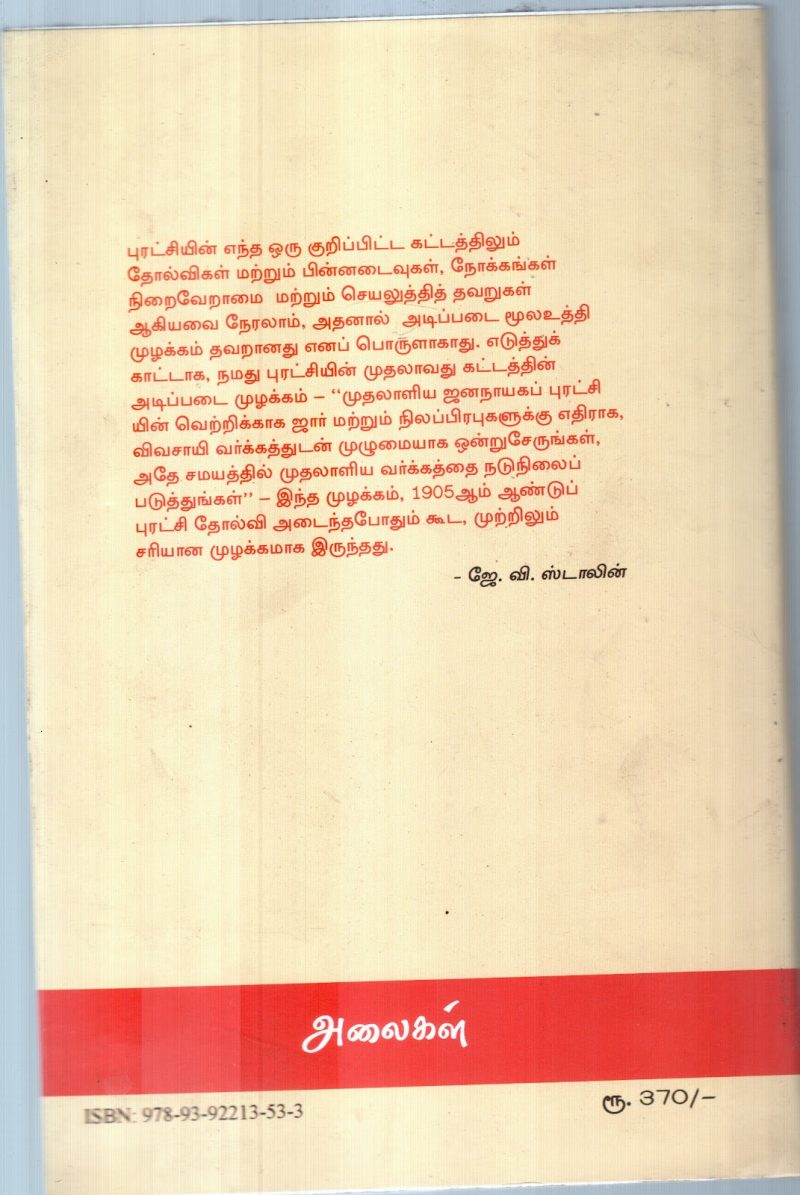 புரட்சியின் எந்த ஒரு குறிப்பிட்ட கட்டத்திலும்
தோல்விகள் மற்றும் பின்னடைவுகள், நோக்கங்கள்
நிறைவேறாமை மற்றும் செயலுத்தித் தவறுகள்
ஆகியவை நேரலாம், அதனால் அடிப்படை மூலஉத்தி
முழக்கம் தவறானது எனப் பொருளாகாது. எடுத்துக்
காட்டாக, நமது புரட்சியின் முதலாவது கட்டத்தின்
அடிப்படை முழக்கம் – “முதலாளிய ஜனநாயகப் புரட்சி
யின் வெற்றிக்காக ஜார் மற்றும் நிலப்பிரபுகளுக்கு எதிராக,
விவசாயி வர்க்கத்துடன் முழுமையாக ஒன்றுசேருங்கள்,
அதே சமயத்தில் முதலாளிய வர்க்கத்தை நடுநிலைப்
படுத்துங்கள்” – இந்த முழக்கம், 1905ஆம் ஆண்டுப்
புரட்சி தோல்வி அடைந்தபோதும் கூட, முற்றிலும்
சரியான முழக்கமாக இருந்தது.
- ஜே. வி. ஸ்டாலின்
அலைகள்
ISBN: 978-93-92213-53-3
ரூ. 370/-